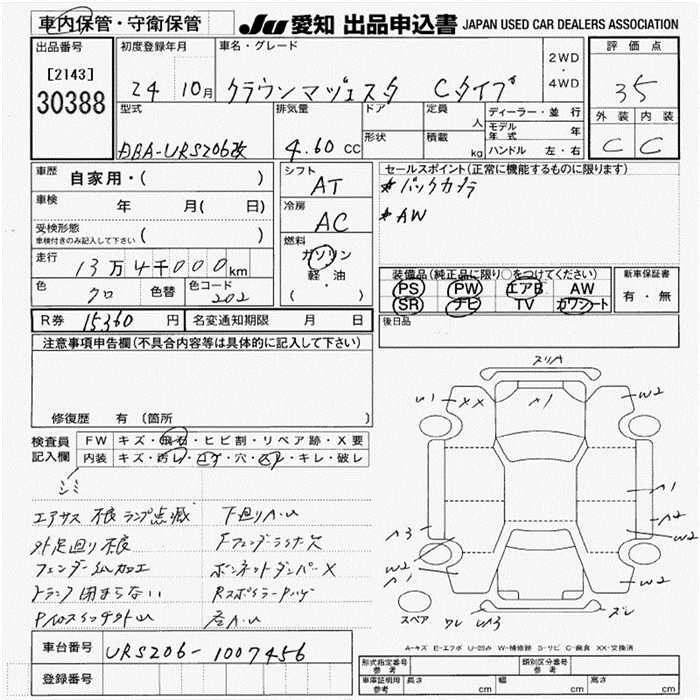 車内保管・守衛保管
JU 愛知 出品申込書 JAPAN USED CAR DEALERS ASSOCIATION
出品番号
[2143]
30388
初度登録年月
24 10月
車名・グレード
クラウンマジェスタ Cタイプ
2WD
・
4WD
評価点
35
外装 内装
C C
型式
DBA-URS206改
排気量
4.60 CC
ドア
形状
定員
人
積載
kg
ディーラー・並行
モデル年式 年
ハンドル 左・右
車歴 自家用・( )
車検 年 月( 日)
受検形態
車検付きのみ記入して下さい ( )
走行 13万4千000km
色 クロ 色替 色コード 202
シフト
AT
冷房
AC
燃料
ガソリン
軽・油
( )
セールスポイント(正常に機能するものに限ります)
*バックカメラ
*AW
装備品(純正品に限り○をつけてください)
PS PW エアB AW
SR ナビ TV カワシート
新車保証書
有・無
後日品
R券 15360 円 名変通知期限 月 日
注意事項申告欄(不具合内容等は具体的に記入して下さい)
修復歴 有 (箇所 )
検査員記入欄
FW キズ・飛石・ヒビ割・リペア跡・X要
内装 キズ・汚レ・コゲ・穴・スレ・キレ・破レ
シミ
エアサス不良ランプ点滅
下廻りA.U
外足廻り不良
Fフェンダーライナー欠
フェンダー仏加工
ボンネットダンパーX
トランク閉まらない
車台番号 URS206-1007456
登録番号
スリA
U1 XX
A1
W2
A1
A2
W2
A3
W2
A1
W2
スペア
ワレ
U3
ズレ
A-キズ E-エクボ U-凹み W-補修跡 S-サビ C-腐食 XX-交換済
形式指定番号
参考
類別区分番号
参考
車庫証明用
参考
長さ cm
幅 cm
高さ cm